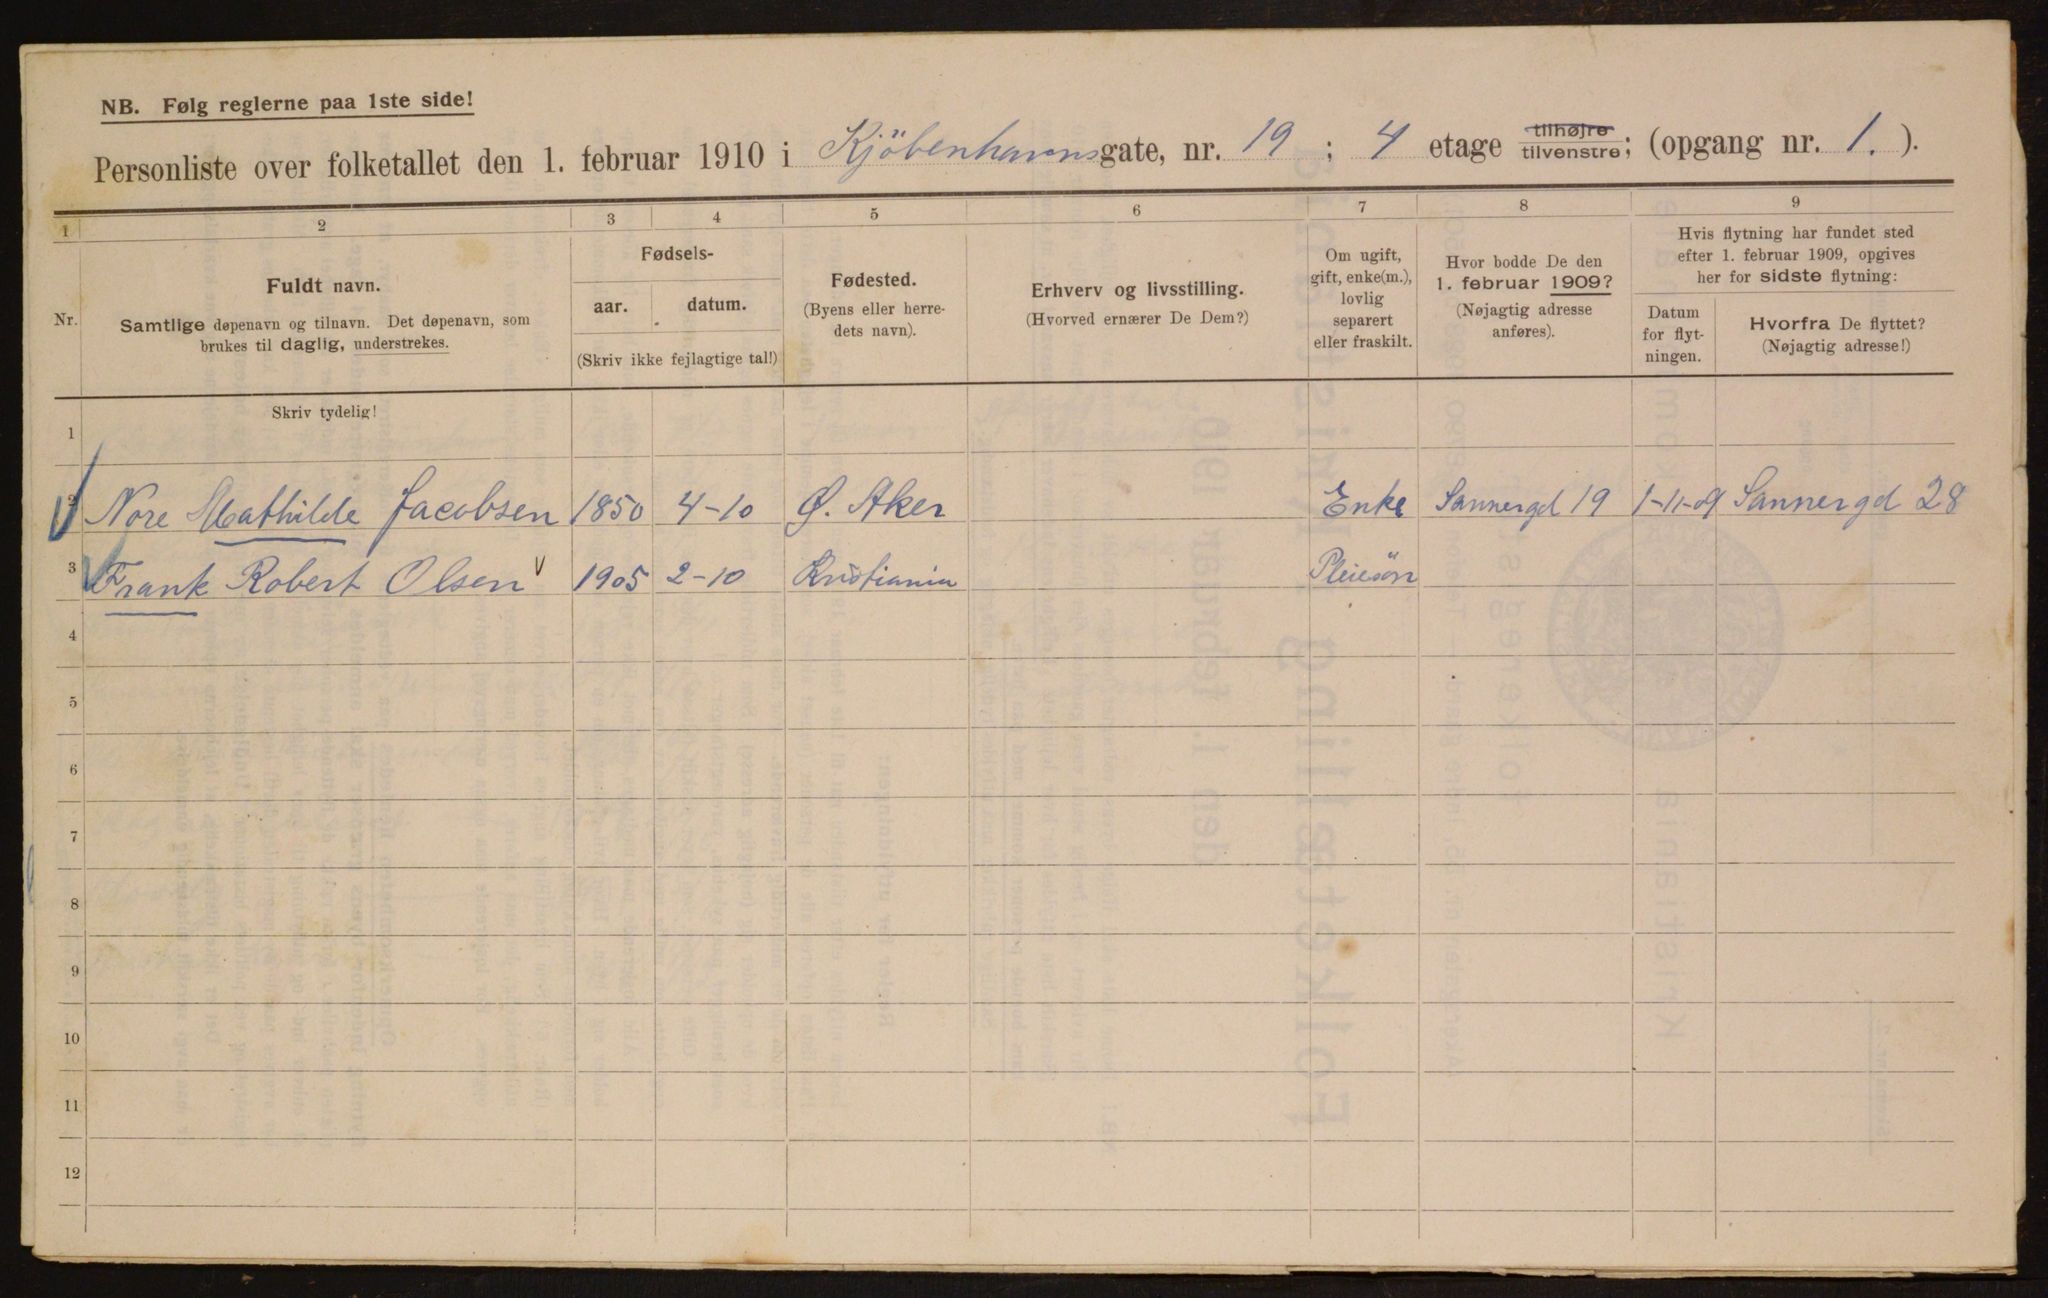 NB. Følg reglerne paa 1ste side!
Personliste over folketallet den 1. februar 1910 i Kjöbenhavnsgate, nr. 19 ; 4 etage tilhøjre tilvenstre; (opgang nr. 1. ).
1 2 3 4 5 6 7 8 9
Nr.
Fuldt navn.
Samtlige døpenavn og tilnavn. Det døpenavn, som
brukes til daglig, understrekes.
Fødsels-
aar. datum.
(Skriv ikke fejlagtige tal!)
Fødested.
(Byens eller herre-
dets navn).
Erhverv og livsstilling.
(Hvorved ernærer De Dem?)
Om ugift,
gift, enke(m.),
lovlig
separert
eller fraskilt.
Hvor bodde De den
1. februar 1909?
(Nøjagtig adresse
anføres).
Hvis flytning har fundet sted
efter 1. februar 1909, opgives
her for sidste flytning:
Datum
for flyt-
ningen.
Hvorfra De flyttet?
(Nøjagtig adresse!)
Skriv tydelig!
1
2 Nore Mathilde Jacobsen 1850 4-10 Ø. Aker Enke Sannergd 19 1-11-09 Sannergd 28
3 Frank Robert Olsen 1905 2-10 Kristiania Pleiesön
4
5
6
7
8
9
10
11
12